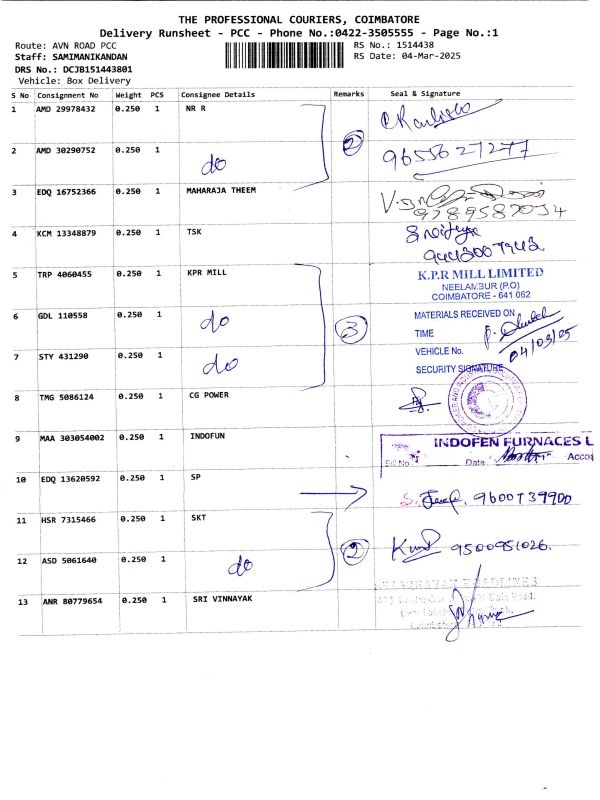 THE PROFESSIONAL COURIERS, COIMBATORE
Delivery Runsheet - PCC - Phone No.:0422-3505555 - Page No.:1
Route: AVN ROAD PCC RS No.: 1514438
Staff: SAMIMANIKANDAN RS Date: 04-Mar-2025
DRS No.: DCJB151443801
Vehicle: Box Delivery
S No Consignment No Weight PCS Consignee Details Remarks Seal & Signature
1 AMD 29978432 0.250 1 NR R
2 AMD 30290752 0.250 1 do 2 9655627277
3 EDQ 16752366 0.250 1 MAHARAJA THEEM 9789587034
4 KCM 13348879 0.250 1 TSK
9443007943
5 TRP 4060455 0.250 1 KPR MILL K.P.R MILL LIMITED
NEELAMBUR (P.O)
COIMBATORE - 641 062
6 GDL 110558 0.250 1 do 3 MATERIALS RECEIVED ON
TIME
7 STY 431290 0.250 1 do VEHICLE No. 04/03/25
SECURITY SIGNATURE
8 TMG 5086124 0.250 1 CG POWER
9 MAA 303054002 0.250 1 INDOFUN INDOFEN FURNACES L
Bill No Date Accou
10 EDQ 13620592 0.250 1 SP 9600739900
11 HSR 7315466 0.250 1 SKT
12 ASD 5061640 0.250 1 do 2 9500951026.
13 ANR 80779654 0.250 1 SRI VINNAYAK